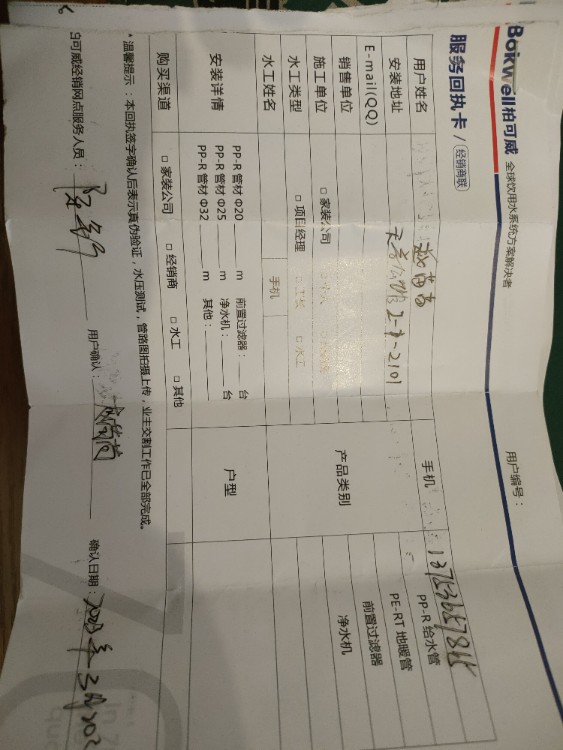 Bokwell柏可威 全球饮用水系统方案解决者
服务回执卡 / 经销商联
用户编号：
用户姓名
手机
安装地址 2-1-2101
E-mail(QQ)
产品类别
PP-R 给水管
PE-RT 地暖管
前置过滤器
净水机
销售单位
施工单位 □ 家装公司
水工类型 □ 项目经理 □ 水工
水工姓名 手机
安装详情 PP-R 管材 Φ20 m 前置过滤器： 台
PP-R 管材 Φ25 m 净水机： 台
PP-R 管材 Φ32 m 其他：
户型
购买渠道 □ 家装公司 □ 经销商 □ 水工 □ 其他
*温馨提示：本回执签字确认后表示真伪验证，水压测试，管路图拍摄上传，业主交割工作已全部完成。
可威经销网点服务人员： 用户确认： 确认日期：